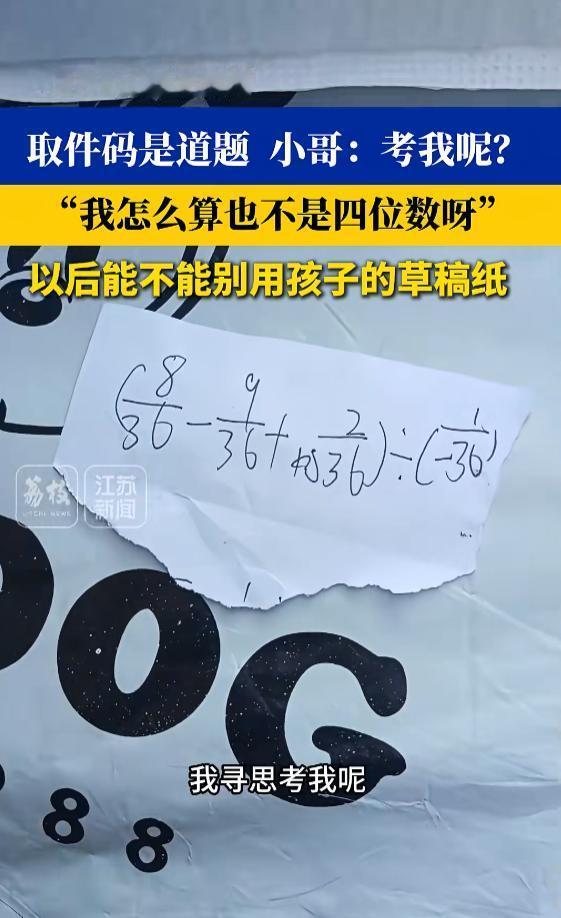 取件码是道题 小哥：考我呢？
“我怎么算也不是四位数呀”
以后能不能别用孩子的草稿纸
(8/36 - 9/36 + 2/36) ÷ (1/-36)
荔枝 江苏
LITCHI NEWS 新闻
OG
我寻思考我呢
88